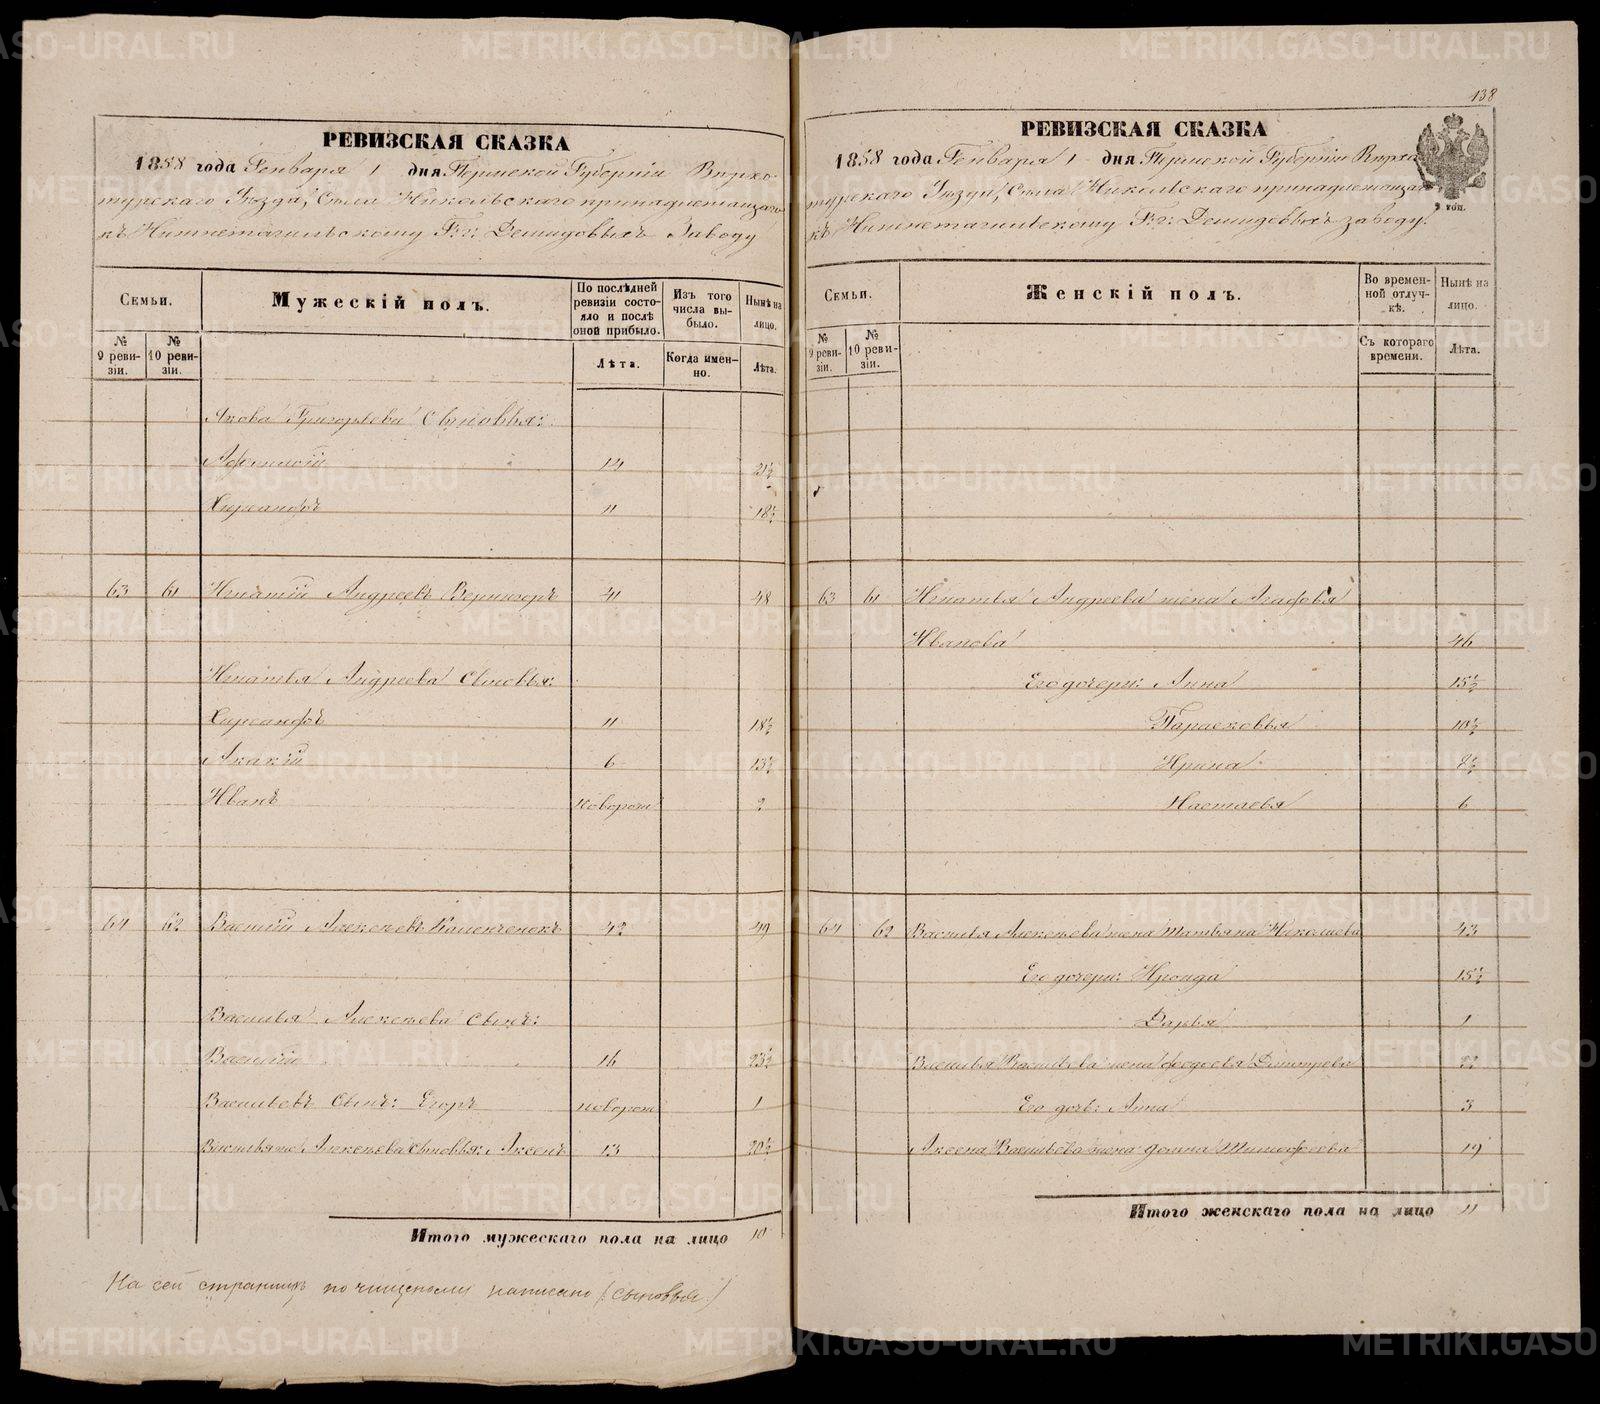 РЕВИЗСКАЯ СКАЗКА
1858 года Генваря 1 дня Пермской Губерніи Верхо-
турскаго Уѣзда, Села Никольскаго принадлежащаго
къ Нижнетагильскому Г.г: Демидовыхъ Заводу
Семьи.
Мужескій полъ.
По послѣдней ревизіи состояло и послѣ оной прибыло.
Изъ того числа выбыло.
Нынѣ на лицо.
№ 9 ревизіи.
№ 10 ревизіи.
Лѣта.
Когда именно.
Лѣта.
Якова Григорьева Сыновья:
Афонасій 14 21½
Хирсанфъ 11 18½
63 61 Игнатій Андреевъ 41 48
Игнатья Андреева Сыновья:
Хирсанфъ 11 18½
Акакій 6 13½
Иванъ новорож 2
64 62 Василий Алексѣевъ 42 49
Василья Алексѣева Сынъ:
Василий 16 23½
Васильевъ Сынъ: Егоръ новорож 1
Васильяже Алексѣева сыновья: Аксенъ 13 20½
Итого мужескаго пола на лицо 10
На сей страницѣ по чищеному написано (сыновья)
138
РЕВИЗСКАЯ СКАЗКА
1858 года Генваря 1 дня Пермской Губерніи Верхо-
турскаго Уѣзда, Села Никольскаго принадлежащаго
къ Нижнетагильскому Г.г: Демидовыхъ заводу.
Семьи.
Женскій полъ.
Во временной отлучкѣ.
Нынѣ на лицо.
№ 9 ревизіи.
№ 10 ревизіи.
Съ котораго времени.
Лѣта.
63 61 Игнатья Андреева жена Агафья
Иванова 46
Его дочери: Анна 15½
Парасковья 10½
Ирина 8½
Настасья 6
64 62 Василья Алексѣева жена Татьяна Николаева 43
Его дочери: Ираида 15½
Дарья 1
Василья Васильева жена Федосья Димитрева 22
Его дочь: Анна 3
Аксена Васильева жена Домна Тимофеева 19
Итого женскаго пола на лицо 11
METRIKI.GASO-URAL.RU